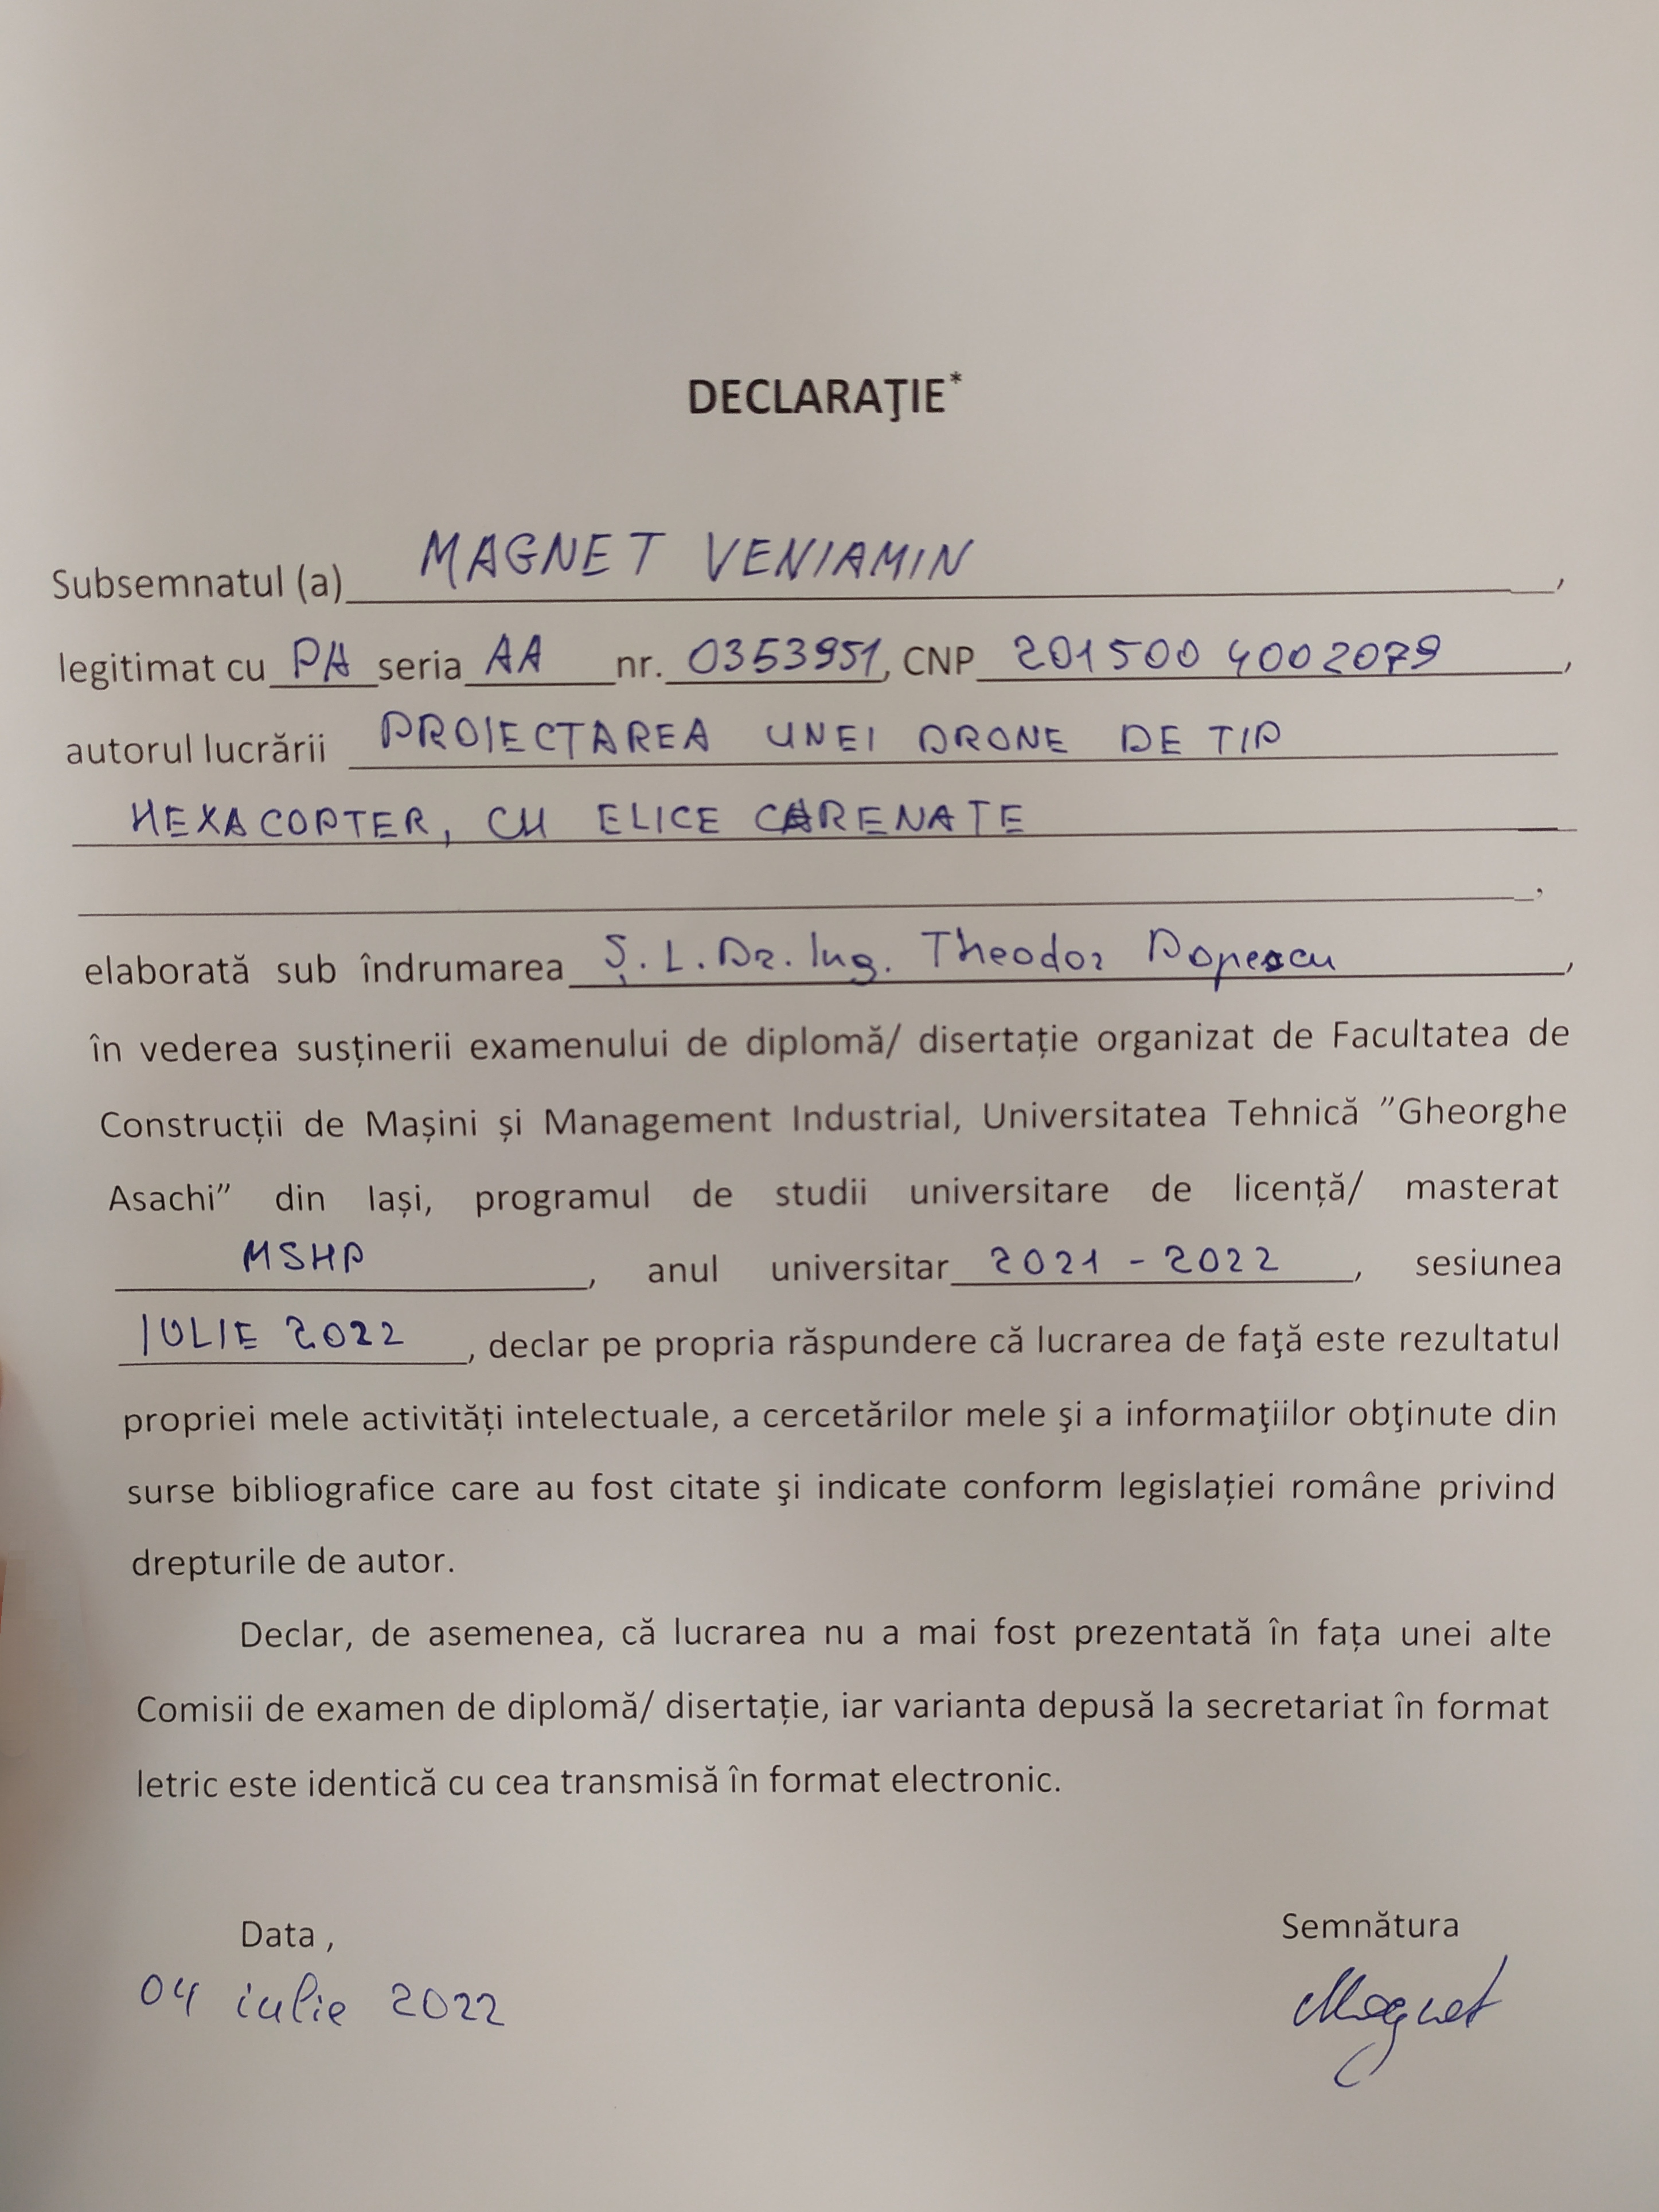 DECLARAŢIE*
Subsemnatul (a) MAGNET VENIAMIN,
legitimat cu PA seria AA nr. 0353951, CNP 2015004002079,
autorul lucrării PROIECTAREA UNEI DRONE DE TIP
HEXACOPTER, CU ELICE CARENATE
,
elaborată sub îndrumarea Ș.L.Dr.Ing. Theodor Popescu,
în vederea susținerii examenului de diplomă/ disertație organizat de Facultatea de
Construcții de Mașini și Management Industrial, Universitatea Tehnică ”Gheorghe
Asachi” din Iași, programul de studii universitare de licență/ masterat
MSHP, anul universitar 2021 - 2022, sesiunea
IULIE 2022, declar pe propria răspundere că lucrarea de faţă este rezultatul
propriei mele activități intelectuale, a cercetărilor mele şi a informaţiilor obţinute din
surse bibliografice care au fost citate şi indicate conform legislației române privind
drepturile de autor.
Declar, de asemenea, că lucrarea nu a mai fost prezentată în fața unei alte
Comisii de examen de diplomă/ disertație, iar varianta depusă la secretariat în format
letric este identică cu cea transmisă în format electronic.
Data , Semnătura
04 iulie 2022 Magnet